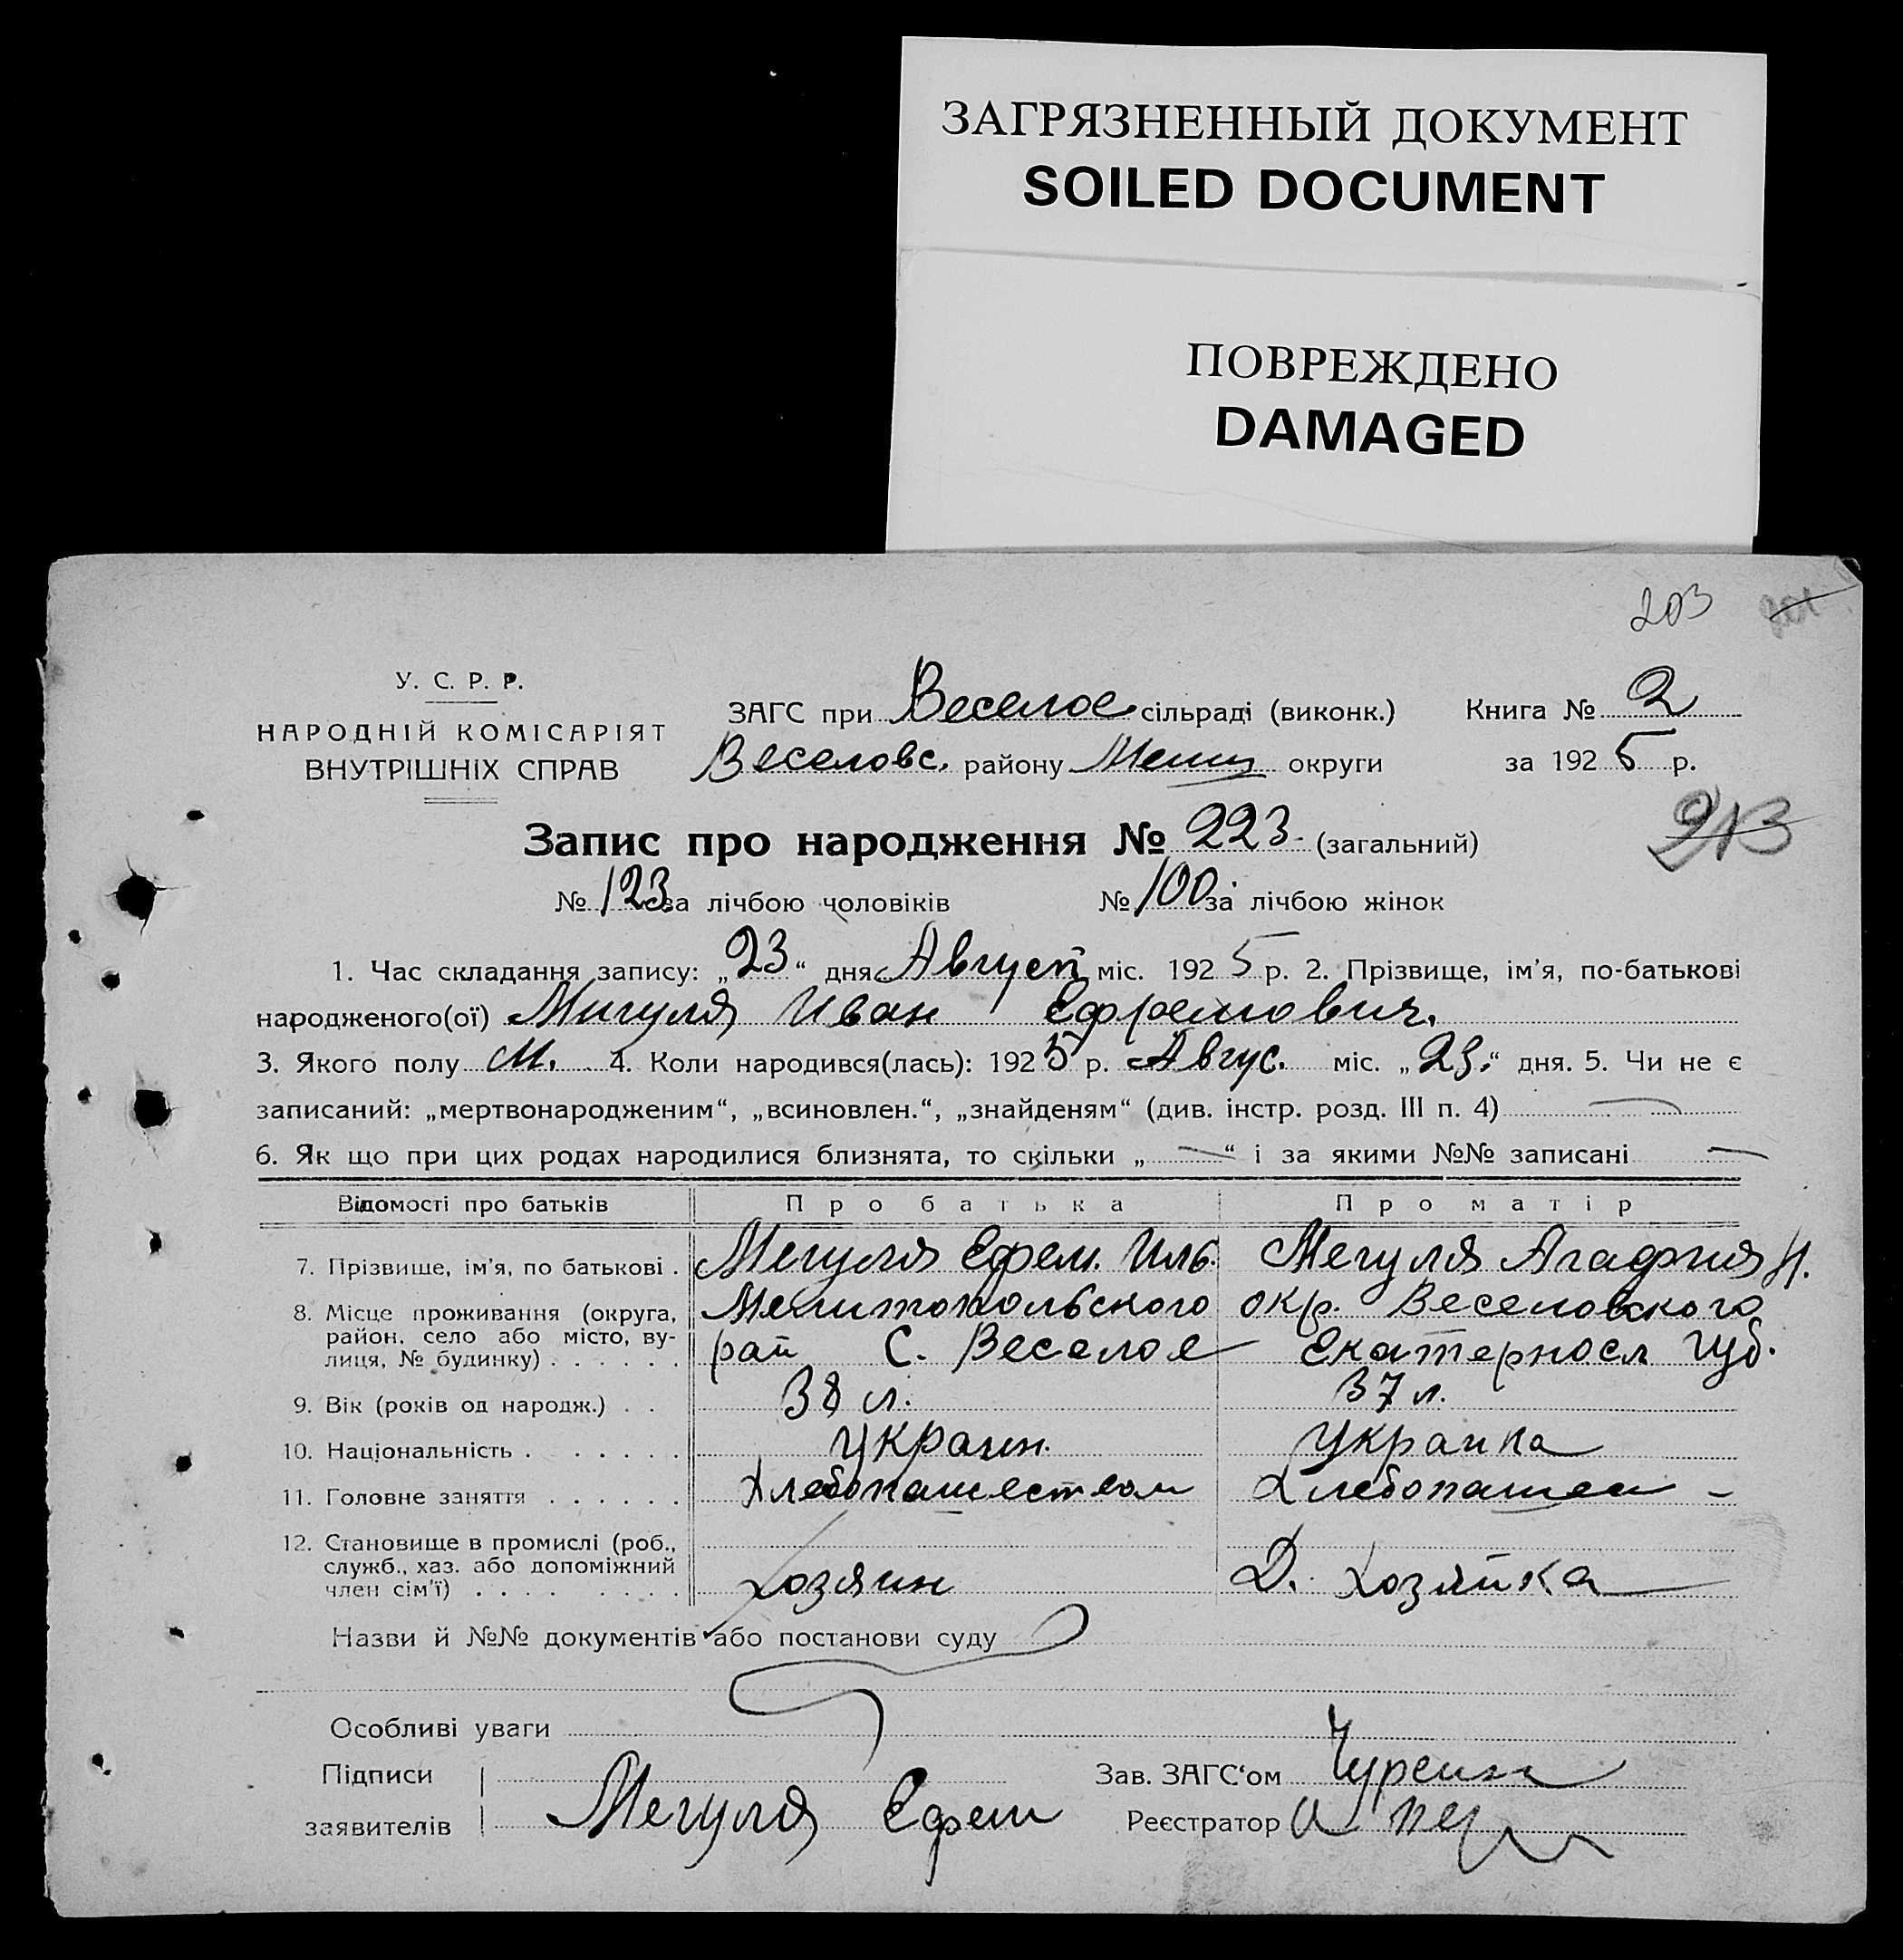 ЗАГРЯЗНЕННЫЙ ДОКУМЕНТ
SOILED DOCUMENT
ПОВРЕЖДЕНО
DAMAGED
203
У. С. Р. Р.
НАРОДНІЙ КОМІСАРІЯТ
ВНУТРІШНІХ СПРАВ
ЗАГС при Веселое сільраді (виконк.) Книга № 2
Веселовс. району округи за 1925 р.
213
Запис про народження № 223 (загальний)
№ 123 за лічбою чоловіків № 100 за лічбою жінок
1. Час складання запису: „23“ дня Август міс. 1925 р. 2. Прізвище, ім’я, по-батькові
народженого(ої) Мигуля Иван Ефремович.
3. Якого полу М. 4. Коли народився(лась): 1925 р. Авгус. міс. „23.“ дня. 5. Чи не є
записаний: „мертвонародженим“, „всиновлен.“, „знайденям“ (див. інстр. розд. III п. 4) —
6. Як що при цих родах народилися близнята, то скільки „—“ і за якими №№ записані —
Відомості про батьків Про батька Про матір
7. Прізвище, ім’я, по батькові . Мегуля Ефрем. Иль. Мегуля Агафия Н.
8. Місце проживання (округа, Мелитопольского окр. Веселовского
район, село або місто, ву-
лиця, № будинку) . . . . . . рай С. Веселое Екатеросл губ.
9. Вік (років од народж.) . . 38 л. 37 л.
10. Національність . . . . . . . Украин. Украинка
11. Головне заняття . . . . . . Хлебопашеством Хлебопашес –
12. Становище в промислі (роб.,
служб., хаз. або допоміжний
член сім’ї) . . . . . . . . . Хозяин Д. Хозяйка
Назви й №№ документів або постанови суду
Особливі уваги
Підписи Зав. ЗАГС‘ом
заявителів Мегуля Ефрем Реєстратор